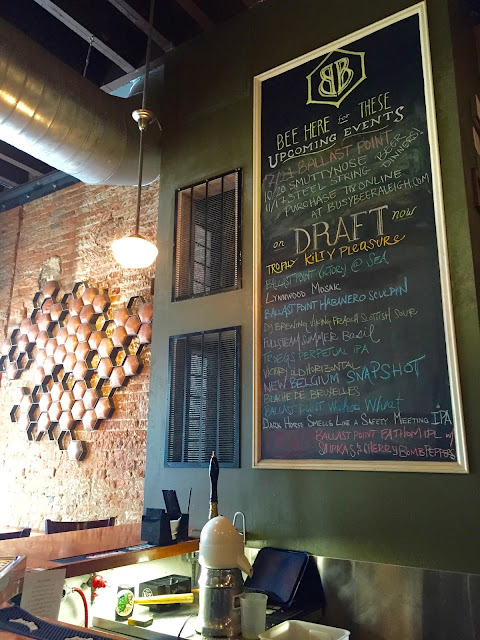 BB
BEE HERE for THESE
UPCOMING EVENTS
BALLAST POINT
10/20 SMUTTYNOSE
11/17 STEEL STRING
BEER DINNERS!
PURCHASE TIX ONLINE
AT BUSYBEERALEIGH.COM
on DRAFT now
TROPHY KILTY PLEASURE
BALLAST POINT VICTORY @ SEA
LYNNWOOD MOSAIC
BALLAST POINT HABANERO SCULPIN
BREWING VIKING FRAOCH SCOTTISH SOUR
FULLSTEAM SUMMER BASIL
TROEGS PERPETUAL IPA
VICTORY OLD HORIZONTAL
NEW BELGIUM SNAPSHOT
BLANCHE DE BRUXELLES
BALLAST POINT Wahoo Wheat
DARK HORSE SMELLS LIKE A SAFETY MEETING IPA
BALLAST POINT FATHOM IPL w/
& CHERRY BOMB PEPPERS